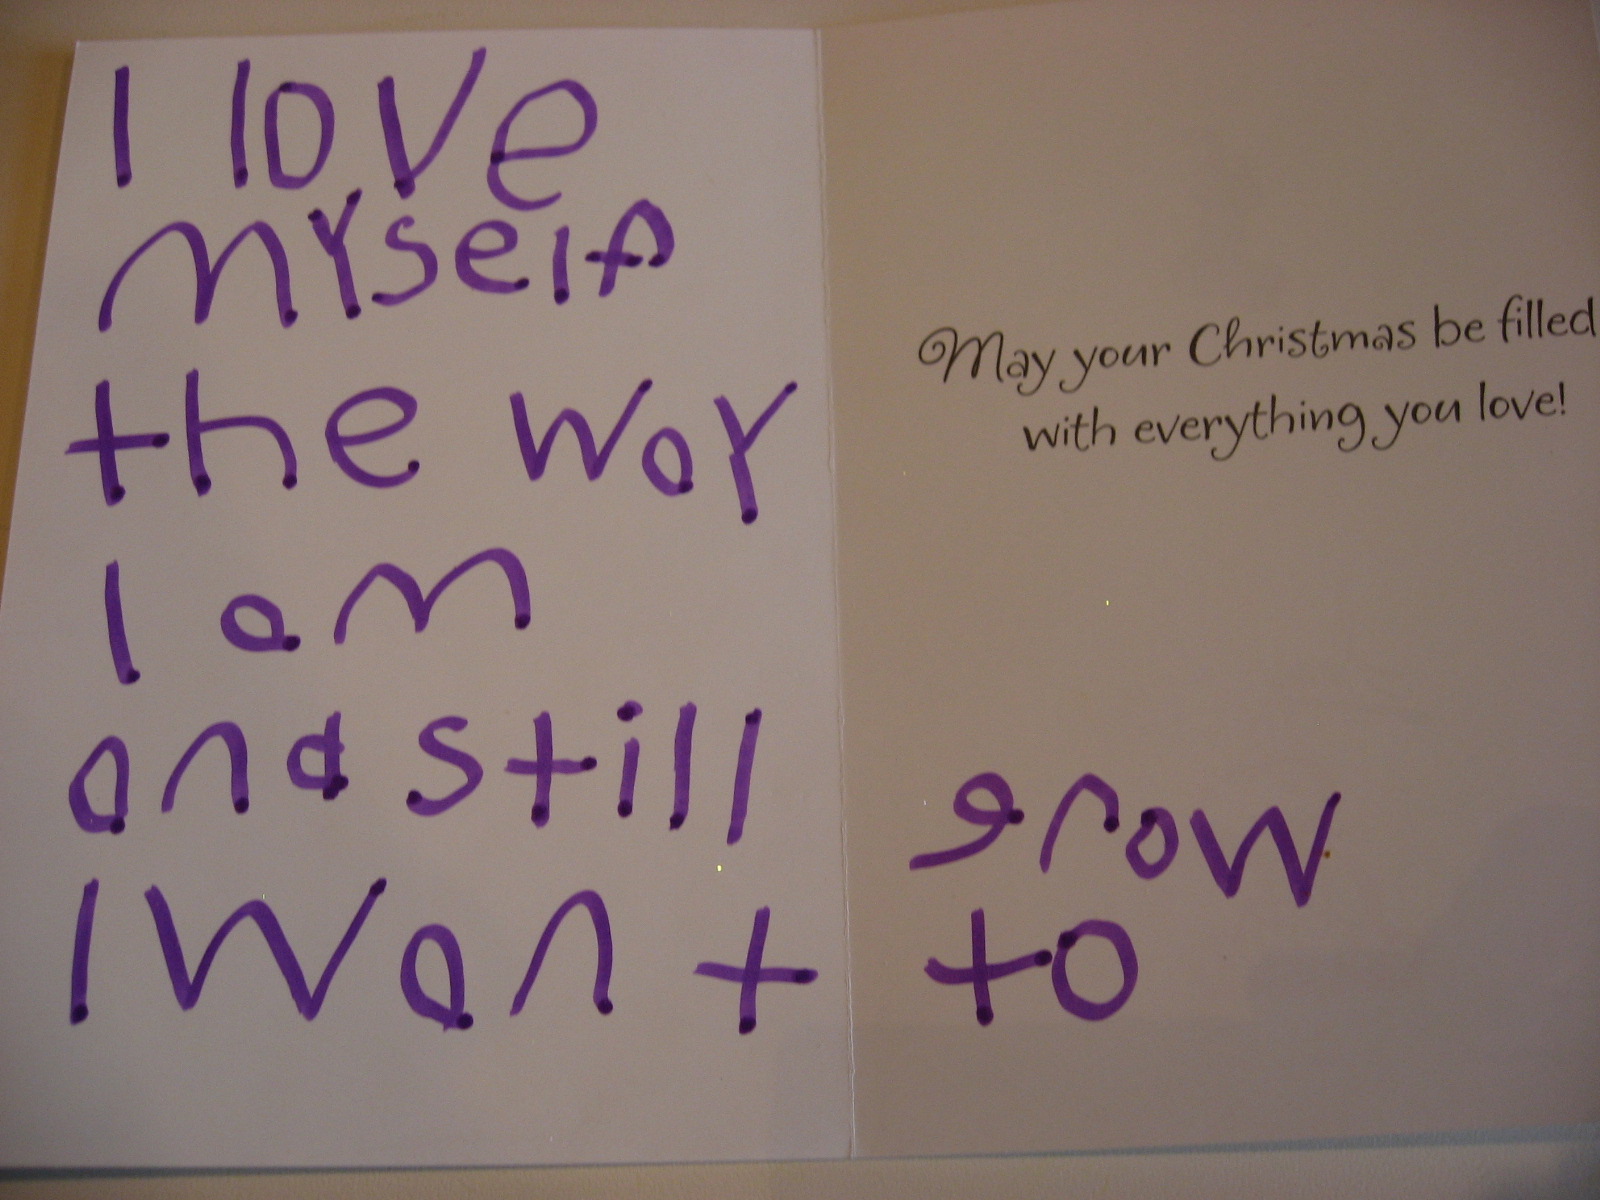 I love
myself
the way
I am
and still
I want
May your Christmas be filled
with everything you love!
grow
to